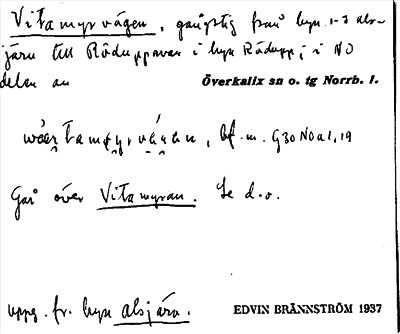 Vitamyrvägen, gångstig från byn 1-3 als-
järv till Råduppavan i byn Rådupp; i NO
delen av Överkalix sn o. tg Norrb. l.
bf. m. G30 NOa1,19
Går över Vitamyran. Se d.o.
uppg. fr. byn alsjärv. EDVIN BRÄNNSTRÖM 1937